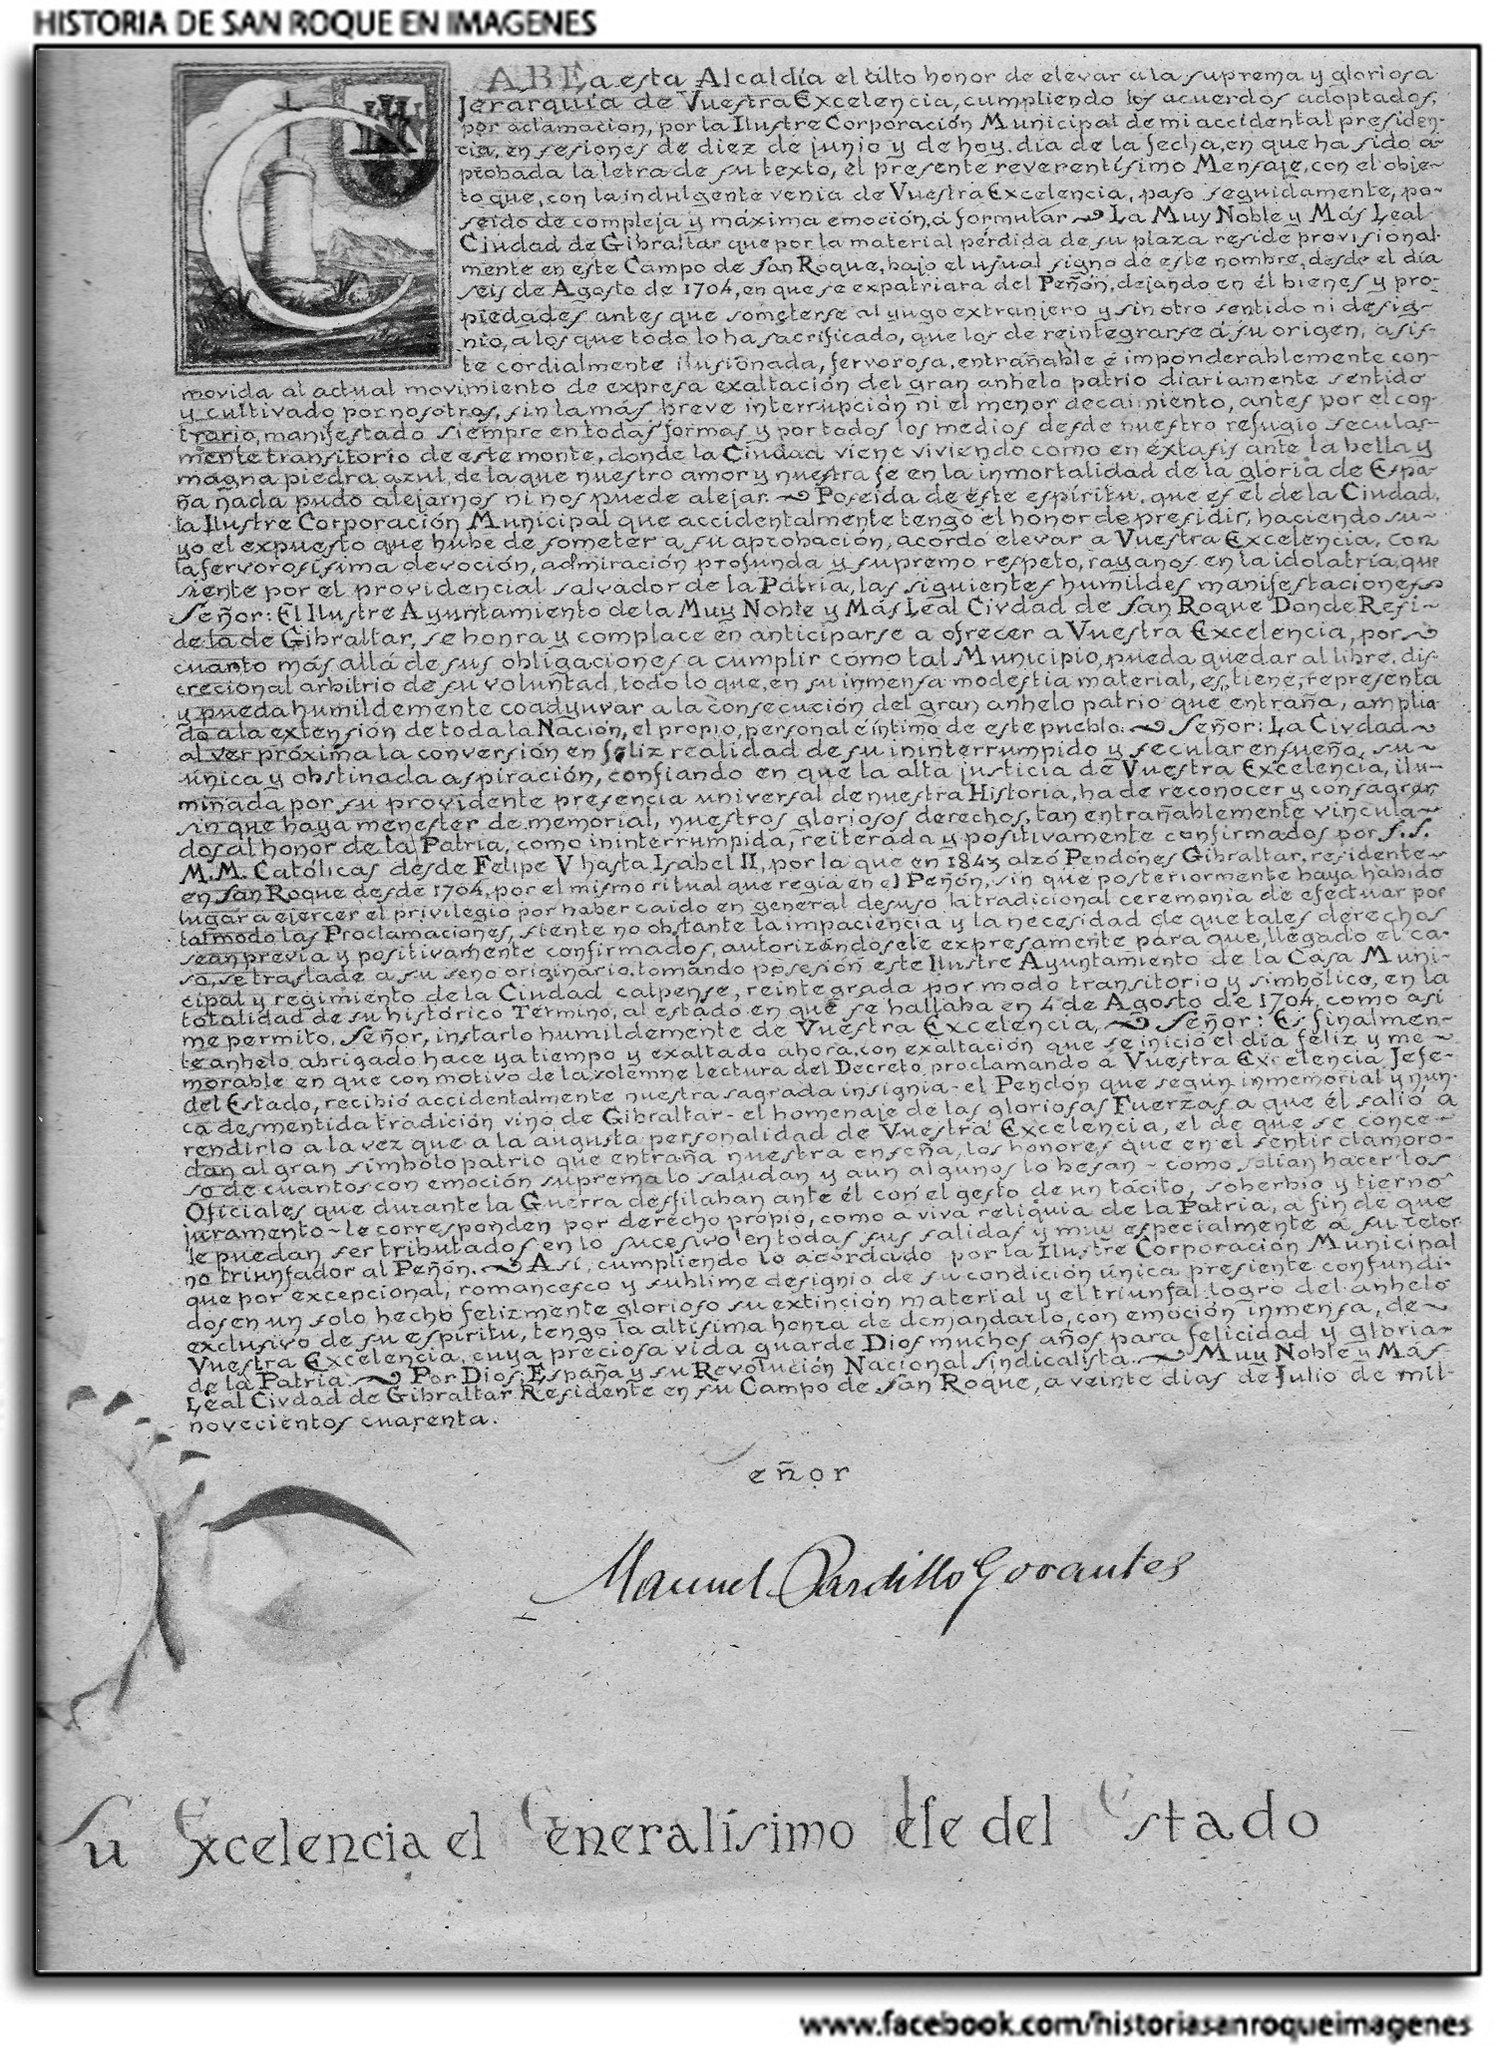 HISTORIA DE SAN ROQUE EN IMAGENES
CABEa esta Alcaldía el alto honor de elevar a la suprema y gloriosa
Jerarquía de Vuestra Excelencia, cumpliendo los acuerdos adoptados,
por aclamacion, por la Ilustre Corporación Municipal de mi accidental presiden-
cia, en sesiones de diez de junio y de hoy, día de la fecha, en que ha sido a-
probada la letra de su texto, el presente reverentísimo Mensaje, con el obje-
to que, con la indulgente venia de Vuestra Excelencia, paso seguidamente, po-
seido de compleja y máxima emoción, a formular ~ La Muy Noble y Más Leal
Ciudad de Gibraltar que por la material pérdida de su plaza reside provisional-
mente en este Campo de San Roque, bajo el usual signo de este nombre, desde el día
seis de Agosto de 1704, en que se expatriara del Peñón, dejando en él bienes y pro-
piedades antes que someterse al yugo extranjero y sin otro sentido ni desig-
nio, a los que todo lo ha sacrificado, que los de reintegrarse a su origen, asis-
te cordialmente ilusionada, fervorosa, entrañable é imponderablemente con-
movida al actual movimiento de expresa exaltación del gran anhelo patrio diariamente sentido
y cultivado por nosotros, sin la más breve interrupción ni el menor decaimiento, antes por el con-
trario, manifestado siempre en todas formas y por todos los medios desde nuestro refugio secular-
mente transitorio de este monte, donde la Ciudad viene viviendo como en éxtasis ante la bella y
magna piedra azul, de la que nuestro amor y nuestra fe en la inmortalidad de la gloria de Espa-
ña nada pudo alejarnos ni nos puede alejar. ~ Poseída de este espíritu, que es él de la Ciudad,
la Ilustre Corporación Municipal que accidentalmente tengo el honor de presidir, haciendo su-
yo el expuesto que hube de someter a su aprobación, acordó elevar a Vuestra Excelencia, con
la fervorosísima devoción, admiración profunda y supremo respeto, rayanos en la idolatría, que
siente por el providencial salvador de la Patria, las siguientes humildes manifestaciones
Señor: El Ilustre Ayuntamiento de la Muy Noble y Más Leal Civdad de San Roque Donde Resi-
de la de Gibraltar, se honra y complace en anticiparse a ofrecer a Vuestra Excelencia, por
cuanto más allá de sus obligaciones a cumplir como tal Municipio, pueda quedar al libre, dis-
crecional arbitrio de su voluntad, todo lo que, en su inmensa modestia material, es, tiene, representa
y pueda humildemente coadyuvar a la consecución del gran anhelo patrio que entraña, amplia-
do a la extensión de toda la Nación, el propio, personal é íntimo de este pueblo. ~ Señor: La Civdad
al ver próxima la conversión en feliz realidad de su ininterrumpido y secular ensueño, su
única y obstinada aspiración, confiando en que la alta justicia de Vuestra Excelencia, ilu-
minada por su providente presencia universal de nuestra Historia, ha de reconocer y consagrar
sin que haya menester de memorial, nuestros gloriosos derechos, tan entrañablemente vincula-
dos al honor de la Patria, como ininterrumpida, reiterada y positivamente confirmados por S.S.
M.M. Católicas desde Felipe V hasta Isabel II, por la que en 1843 alzó Pendones Gibraltar, residente
en San Roque desde 1704, por el mismo ritual que regía en el Peñón, sin que posteriormente haya habido
lugar a ejercer el privilegio por haber caído en general desuso la tradicional ceremonia de efectuar por
tal modo las Proclamaciones, siente no obstante la impaciencia y la necesidad de que tales derechos
sean previa y positivamente confirmados, autorizándosele expresamente para que, llegado el ca-
so, se traslade a su seno originario, tomando posesión este Ilustre Ayuntamiento de la Casa Muni-
cipal y regimiento de la Ciudad calpense, reintegrada por modo transitorio y simbólico, en la
totalidad de su histórico Término, al estado en que se hallaba en 4 de Agosto de 1704, como así
me permito, Señor, instarlo humildemente de Vuestra Excelencia, ~ Señor: Es finalmen-
te anhelo abrigado hace ya tiempo y exaltado ahora, con exaltación que se inicio el día feliz y me-
morable en que con motivo de la solemne lectura del Decreto proclamando a Vuestra Excelencia Jefe
del Estado, recibió accidentalmente nuestra sagrada insignia - el Pendón que según inmemorial y nun-
ca desmentida tradición vino de Gibraltar - el homenaje de las gloriosas Fuerzas a que él salió a
rendirlo a la vez que a la augusta personalidad de Vuestra Excelencia, el de que se conce-
dan al gran símbolo patrio que entraña nuestra enseña, los honores que en el sentir clamoro-
so de cuantos con emoción suprema lo saludan y aun algunos lo besan - como solían hacer los
Oficiales que durante la Guerra desfilaban ante él con el gesto de un tácito, soberbio y tierno
juramento - le corresponden por derecho propio, como a viva reliquia de la Patria, a fin de que
le puedan ser tributados en lo sucesivo en todas sus salidas y muy especialmente a su retor
no triunfador al Peñón. ~ Así, cumpliendo lo acordado por la Ilustre Corporación Municipal
que por excepcional, romancesco y sublime designio de su condición única presiente confundi-
dos en un solo hecho felizmente glorioso su extinción material y el triunfal logro del anhelo
exclusivo de su espíritu, tengo la altísima honra de demandarlo, con emoción inmensa, de
Vuestra Excelencia, cuya preciosa vida guarde Dios muchos años para felicidad y gloria
de la Patria. ~ Por Dios, España y su Revolución Nacional Sindicalista. ~ Muy Noble y Más
Leal Civdad de Gibraltar Residente en su Campo de San Roque, a veinte dias de Julio de mil
novecientos cuarenta.
Señor
Manuel Pardillo Gorantes
Su Excelencia el Generalísimo Jefe del Estado
www.facebook.com/historiasanroqueimagenes